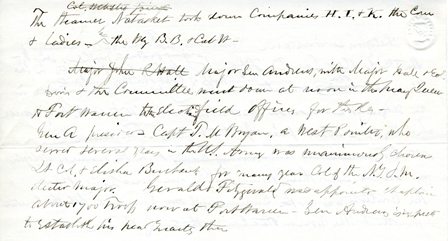 The steamer Nantasket took down Companies H. I. & K. the Com
& Ladies - the Wg B.B. & Col W-
Major John P. Hall Major Gen Andrews, with Major Hall &
& the Committee went down at noon in the May Queen
to Fort Warren to elect field officers for the
Gen A presided - Capt T. M Bryan, a West Pointer, who
served several years in the US. Army was unanimously chosen
Lt Col. & Elisha Burbank for many years Col of the
Major. Geraldus Fitzgerald was appointed chaplain
about 1700 troops now at Fort Warren - Gen Andrews is
to establish his head quarters there